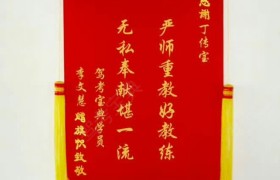 感谢丁传宝
严师重教好教练
无私奉献堪一流
驾考宝典学员
李文慧 赠旗致敬